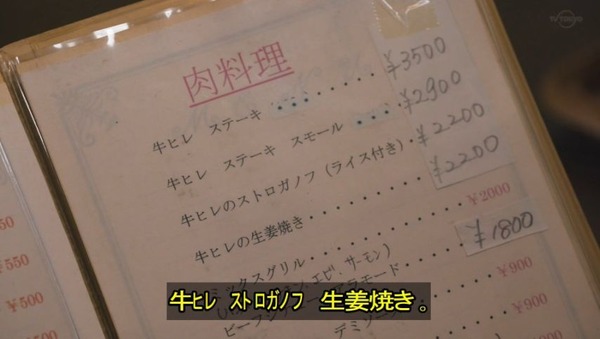 TV TOKYO
肉料理
牛ヒレ ステーキ ・・・・・・・・ ¥3500
牛ヒレ ステーキ スモール ・・・・ ¥2900
牛ヒレのストロガノフ(ライス付き)・ ¥2200
牛ヒレの生姜焼き・・・・・・・・・ ¥2200
ミックスグリル・・・・・・・・・・ ¥2000
エビ、サーモン)
¥1800
¥900
¥900
50
¥550
¥500
牛ヒレ ストロガノフ 生姜焼き。